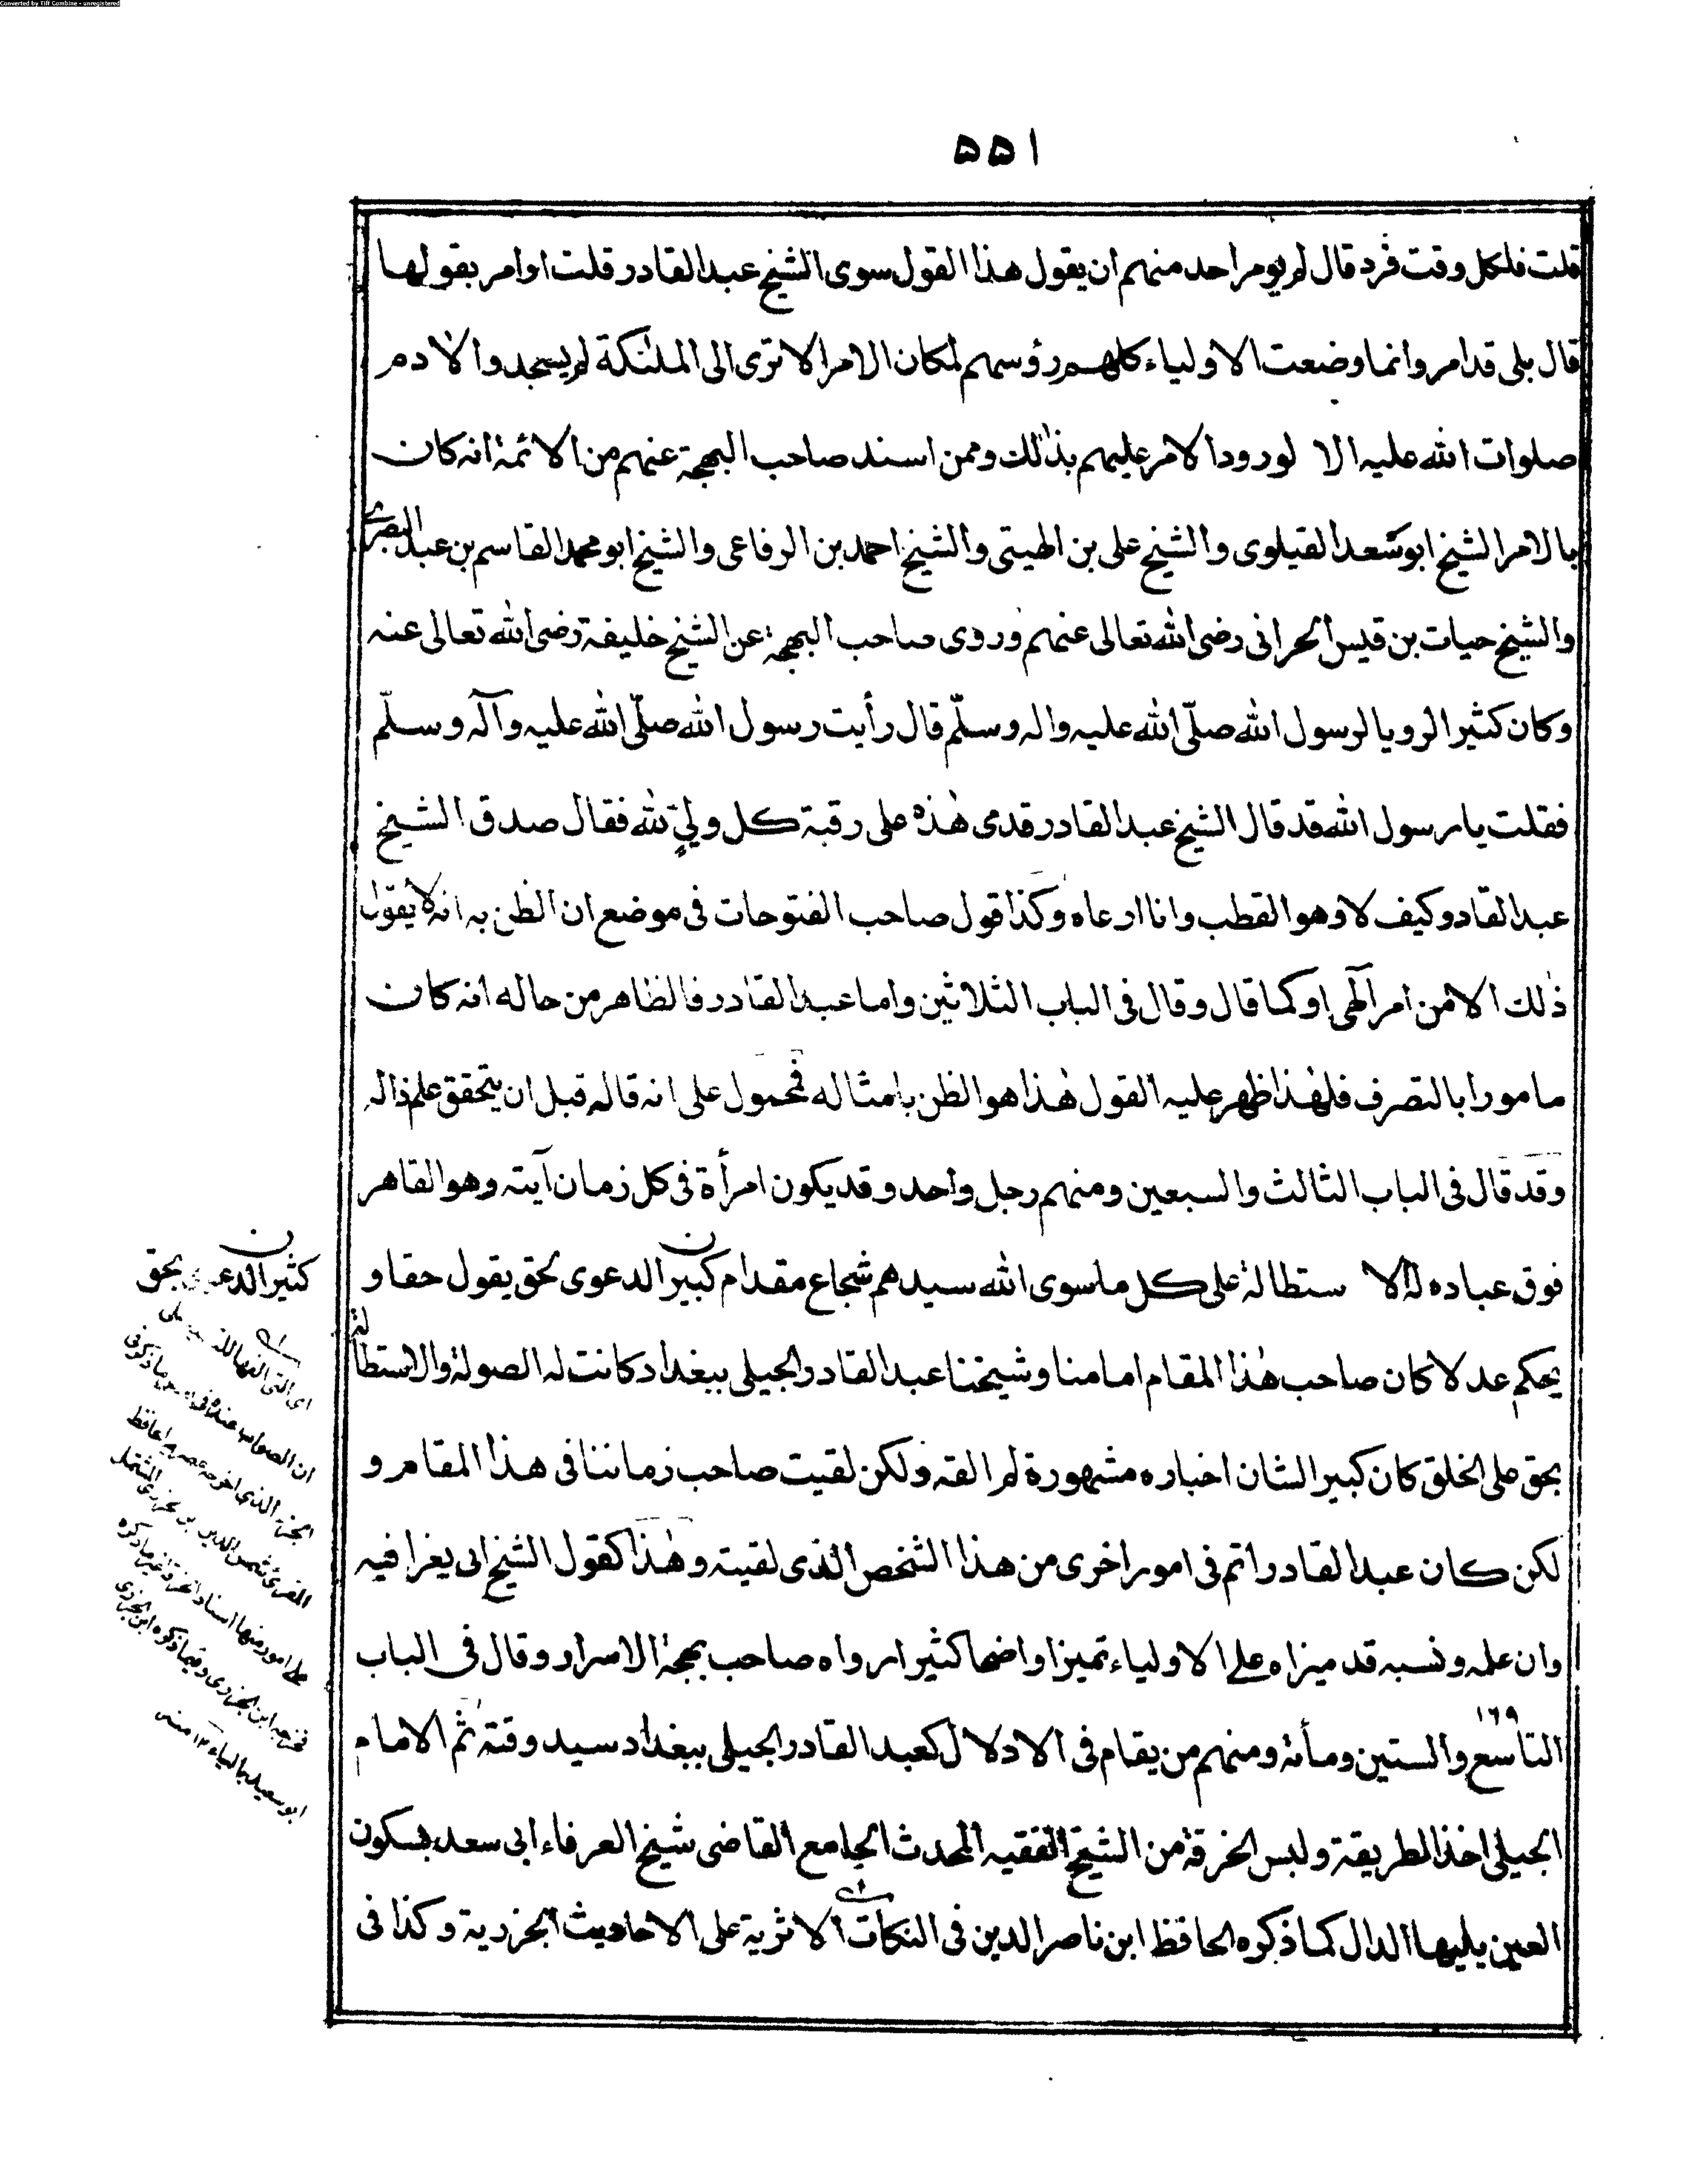 Converted by Tiff Combine - unregistered
۵۵۱
قلت فلكل وقت فرد قال لم يومر احد منهم ان يقول هذا القول سوى الشيخ عبد القادر قلت او امر بقولها
قال بلى قد امر وانما وضعت الاولياء كلهم رؤسهم لمكان الامر الا ترى الى الملئكة لم يسجدوا لادم
صلوات الله عليه الا لورود الامر عليهم بذٰلك وممن اسند صاحب البهجة عنهم من الائمة انه كان
بالامر الشيخ ابو سعد القيلوى والشيخ على بن الهيتى والشيخ احمد بن الرفاعى والشيخ ابو محمد القاسم بن عبد البصرى
والشيخ حيات بن قيس الحرانى رضى الله تعالى عنهم وروى صاحب البهجة عن الشيخ خليفة رضى الله تعالى عنه
وكان كثير الرويا لرسول الله صلّى الله عليه واله وسلّم قال رأيت رسول الله صلّى الله عليه وآله وسلّم
فقلت يا رسول الله قد قال الشيخ عبد القادر قدمى هٰذه على رقبة كل وليٍّ لله فقال صدق الشيخ
عبد القادر وكيف لا وهو القطب وانا ارعاه وكذا قول صاحب الفتوحات فى موضع ان الظن به انه لا يقول
ذٰلك الا من امر آلٰهى او كما قال وقال فى الباب الثلاثين واما عبد القادر فالظاهر من حاله انه كان
مامورا بالتصرف فلهٰذا ظهر عليه القول هٰذا هو الظن بامثاله فمحمول على انه قاله قبل ان يتحقق علم ذاله
وقد قال فى الباب الثالث والسبعين ومنهم رجل واحد وقد يكون امرأة فى كل زمان آيته وهو القاهر
فوق عباده له الا ستطالة على كل ما سوى الله سيدهم شجاع مقدام كبير الدعوى بحق يقول حقا و
يحكم عدلا كان صاحب هٰذا المقام امامنا وشيخنا عبد القادر الجيلى ببغداد كانت له الصولة والاستطالة
بحق على الخلق كان كبير الشان اخباره مشهورة لم القه ولكن لقيت صاحب زماننا فى هذا المقام و
لكن كان عبد القادر اتم فى امور اخرى من هذا الشخص الذى لقيته وهٰذا كقول الشيخ ابى يعزا فيه
وان علمه ونسبه قد ميزاه على الاولياء تميزا واضحا كثيرا رواه صاحب بهجة الاسرار وقال فى الباب
التاسع والستين ومأئة ومنهم من يقام فى الادلال كعبد القادر الجيلى ببغداد سيد وقته ثم الامام
۱۶۹
الجيلى اخذ الطريقة ولبس الخرقة من الشيخ الفقيه المحدث الجامع القاضى شيخ العرفاء ابى سعد بسكون
العين يليها الدال كما ذكره الحافظ ابن ناصر الدين فى النكات الاثرية على الاحاديث الجزرية وكذا فى
ن
كثير الدعوى بحق
ان الصواب عنده فى
الجزء الذى اخرجه
المقرئ شمس الدين بن جزرى المشتمل
على امور منها اسناد الخرقة
ابن الجزرى وفيما ذكره ابن الجزرى
ابو سعيد بالياء ۱۲ منه